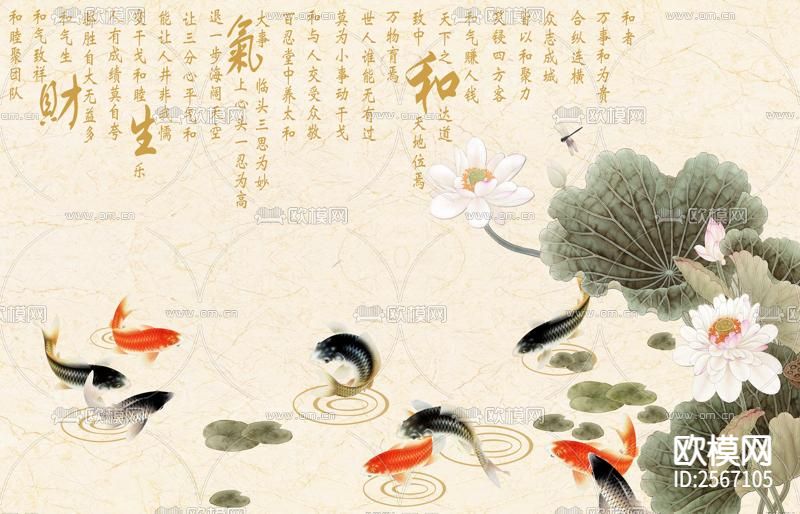 和者
万事和为贵
合纵连横
众志成城
皆以和聚力
四方客
和气赚人钱
天下之
达道
致中
和
天地位焉
万物育焉
世人谁能无有过
莫为小事动干戈
和与人交受众敬
百忍堂中养太和
大事临头三思为妙
氣
上心头一忍为高
退一步海阔天空
让三分心平气和
能让人井非我懦
变干戈和睦
生
乐
有成绩莫自夸
胜自大无益多
和气生
財
和气致祥
和睦聚团队
欧模网
www.om.cn
欧模网
ID:2567105